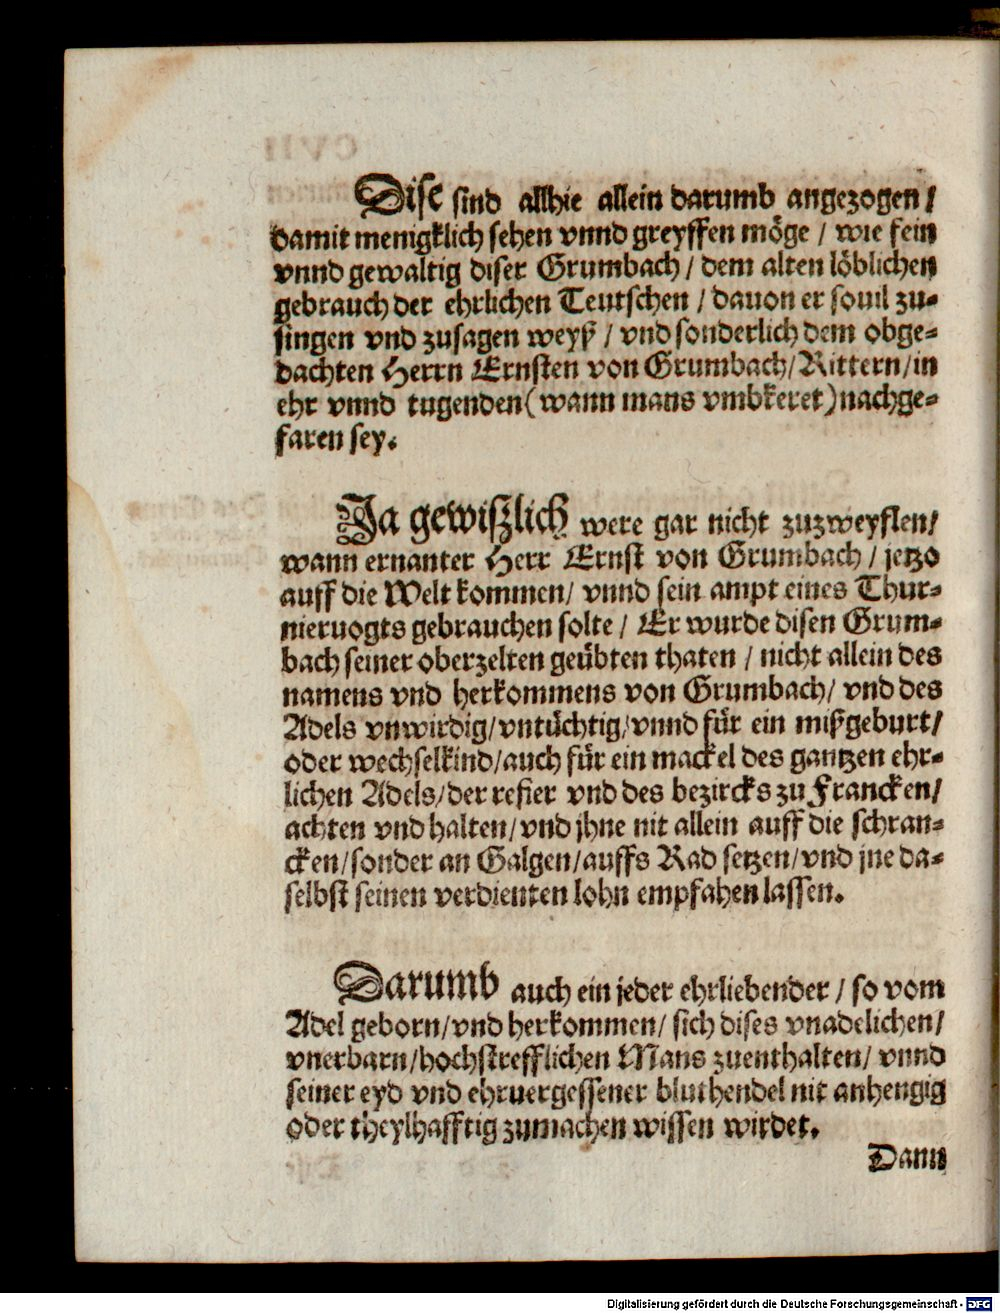 Dise sind allhie allein darumb angezogen /
damit menigklich sehen vnnd greyffen möge / wie fein
vnnd gewaltig diser Grumbach / dem alten löblichen
gebrauch der ehrlichen Teutschen / dauon er souil zu-
singen vnd zusagen weyß / vnd sonderlich dem obge-
dachten Herrn Ernsten von Grumbach / Rittern / in
ehr vnnd tugenden (wann mans vmbkeret) nachge-
faren sey.
Ja gewißlich were gar nicht zuzweyflen /
wann ernanter Herr Ernst von Grumbach / jetzo
auff die Welt kommen / vnnd sein ampt eines Thur-
nieruogts gebrauchen solte / Er wurde disen Grum-
bach seiner oberzelten geübten thaten / nicht allein des
namens vnd herkommens von Grumbach / vnd des
Adels vnwirdig / vntüchtig / vnnd für ein mißgeburt /
oder wechselkind / auch für ein mackel des gantzen ehr-
lichen Adels / der refier vnd des bezircks zu Francken /
achten vnd halten / vnd jhne nit allein auff die schran-
cken / sonder an Galgen / auffs Rad setzen / vnd jne da-
selbst seinen verdienten lohn empfahen lassen.
Darumb auch ein jeder ehrliebender / so vom
Adel geborn / vnd herkommen / sich dises vnadelichen /
vnerbarn / hochstrefflichen Mans zuenthalten / vnnd
seiner eyd vnd ehruergessener bluthendel nit anhengig
oder theylhafftig zumachen wissen wirdet.
Dann
Digitalisierung gefördert durch die Deutsche Forschungsgemeinschaft - DFG